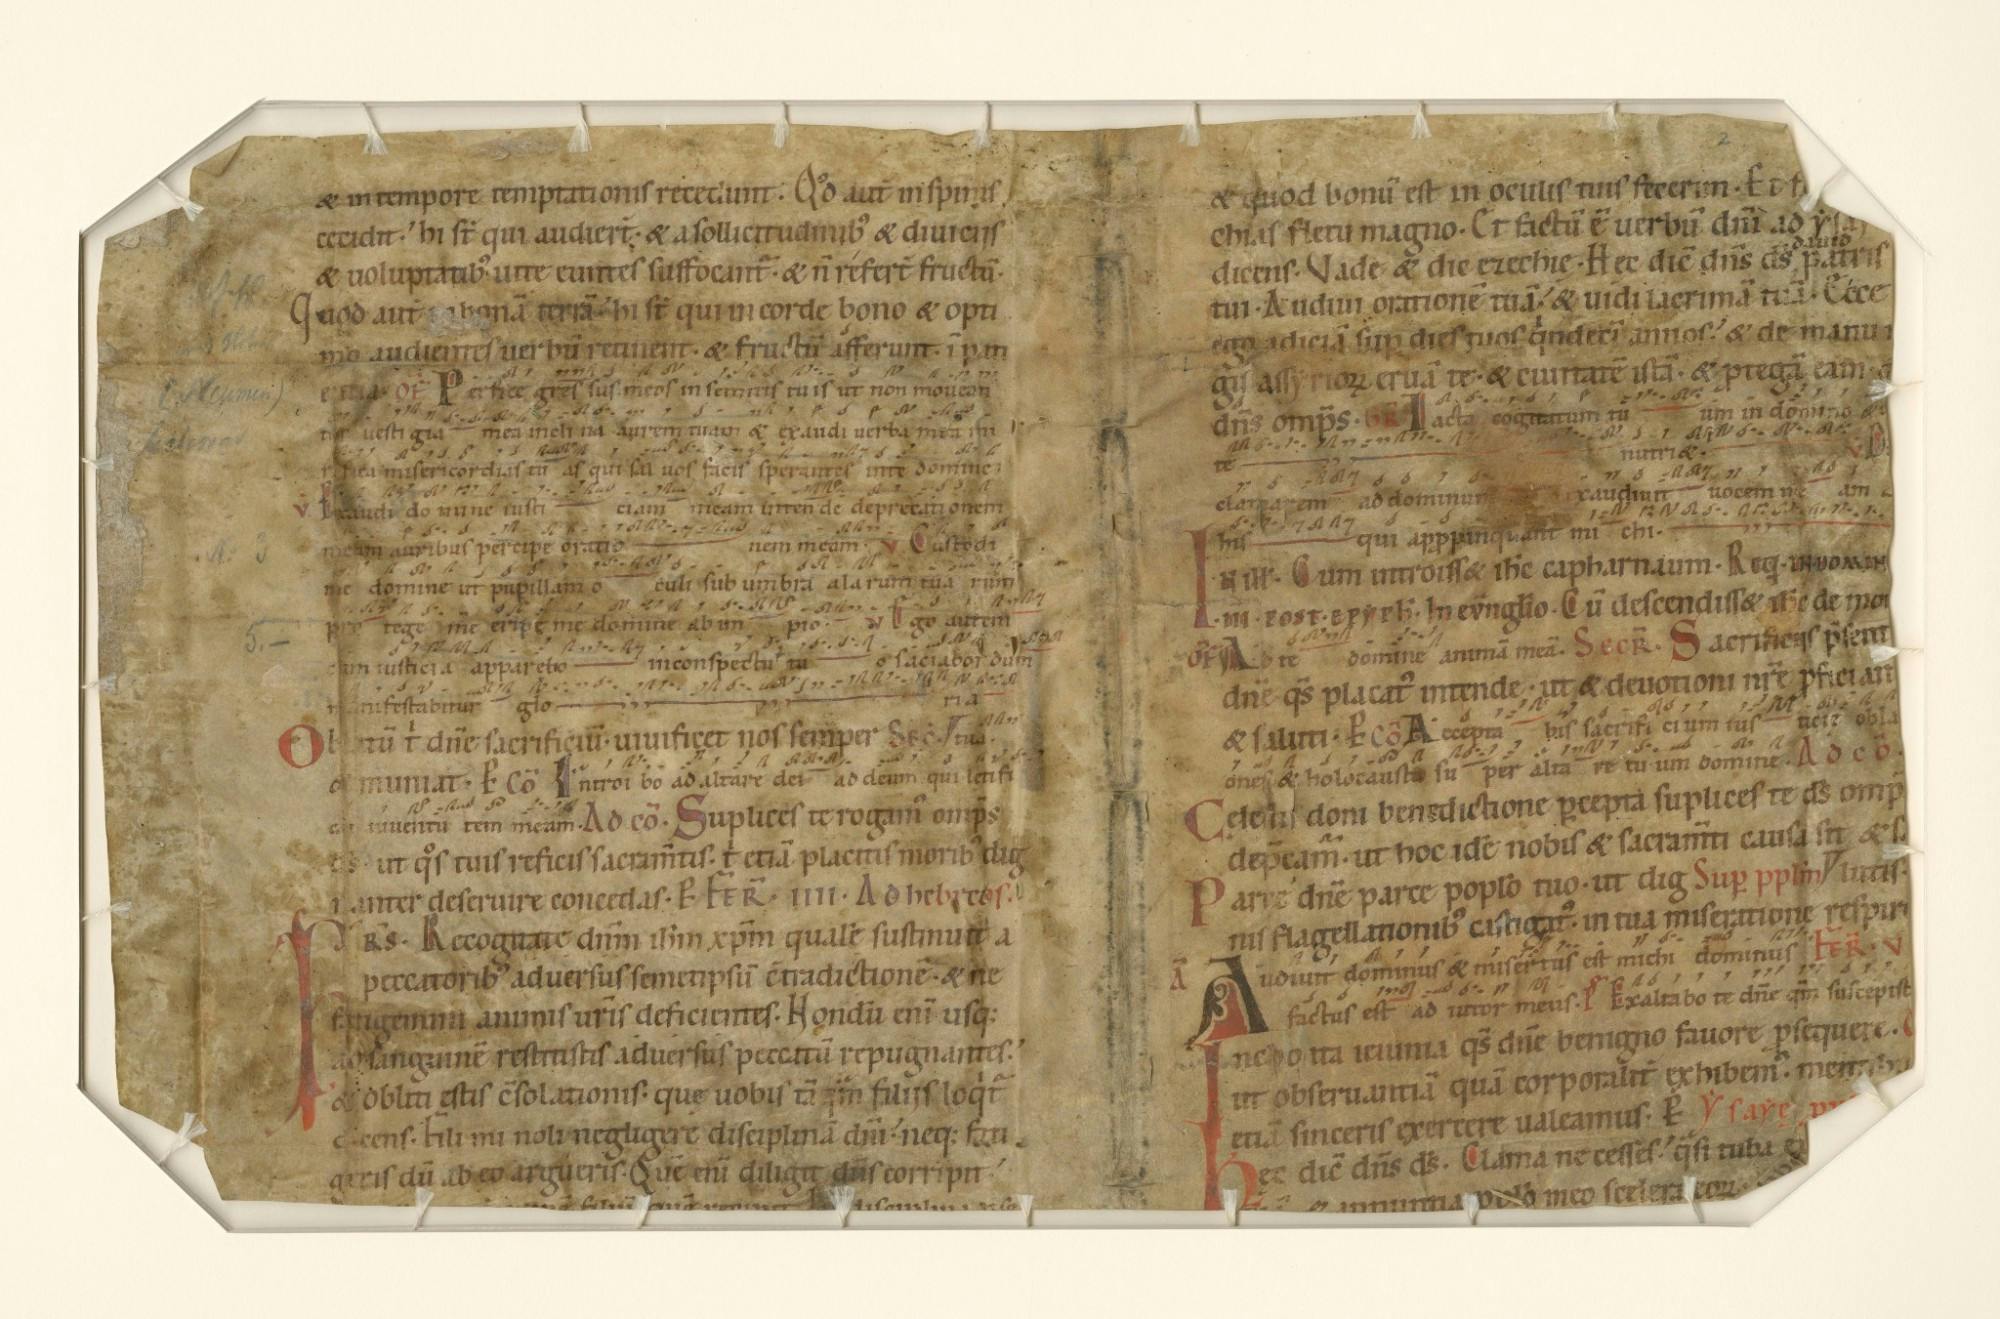 & in tempore temptationis recedunt. Qd̊ aut̄ in spinis
cecidit. hi st̄ qui audiert̄. & a sollicitudinib; & divitiis
& voluptatib; vite euntes suffocant̄. & n̄ refert̄ fructū.
Quod aut̄ bonā terrā. hi st̄ qui in corde bono & opti
mo audientes verbū retinent. & fructū afferunt. ī pati
entia. Of̄ Perfice gres sus meos in semitis tuis ut non movean
tur vestigia mea incli na aurem tuam & exaudi verba mea mi
rifica misericordias tu as qui sal vos facis sperantes in te domine
v̄ Exaudi do mine iusti ciam meam inten de deprecationem
meam auribus percipe oratio nem meam. v Custodi
me domine ut pupillam o culi sub umbra alarum tua rum
pro tege me eripe me domine ab im pio. v Ego autem
cum iusticia apparebo in conspectu tu o saciabor dum
manifestabitur glo ria
Oblatū t̄ dn̄e sacrificiū. vivificet nos semper Sec̄. tua.
& muniat. P Cō Introi bo ad altare dei ad deum qui letifi
cat iuventu tem meam. Ad cō. Suplices te rogam̄ omp̄s
ds̄. ut qo̊s tuis reficis sacram̄tis. t̄ etiā placitis morib; dig
nanter deservire concedas. P Fer̄. IIII. Ad hebreos.
Frs̄. Recogitate dn̄m ih̄m xp̄m qualē sustinuit a
peccatorib; adversus semetipsū c̄tradictionē. & ne
fatigemini animis vr̄is deficientes. Hondū enī usq;
ad sanguinē restitistis adversus peccatū repugnantes.
& obliti estis c̄solationis. que vobis tā qm̄ filiis loqt̄
dicens. Fili mi noli negligere disciplinā dn̄i. neq; fati
geris dū ab eo argueris. Quē enī diligit dn̄s corripit.
2
& quod bonū est in oculis tuis fecerim. Et f
chias fletu magno. Et factū ē verbū dn̄i ad ysa
david
dicens. Vade & dic ezechie. Hec dic̄ dn̄s ds̄ patris
tui. Audivi orationē tuā. & vidi lacrimā tuā. Ecce
ego adiciā sup̄ dies tuos qndecī annos. & de manu r
gis assyrioꝝ eruā te. & civitatē istā. & ꝓtegā eam. a
dn̄s omp̄s. GR̄ Iacta cogitatum tu um in domino &
te nutri&. v D
clamarem ad dominum exaudivit vocem me am a
his qui appropinquant mi chi.
In ill̄. Cum introiss& ih̄c capharnaum. Req. in domin
III. post. epyph̄. In ev̄nglio. Cū descendiss& ih̄c de mon
Of̄ Ad te domine animā meā. Secr̄. Sacrificiis p̄sent
dn̄e qs̄ placat; intende. ut & devotioni nr̄e ꝓficiant
& saluti. P Cō Accepta bis sacrifi cium ius ticie obla
ones & holocausta su per alta re tu um domine. Ad cō.
Celestis doni benedictione ꝑcepta suplices te ds̄ omp̄
dep̄cam̄. ut hoc idē nobis & sacram̄ti causa sit & s
Parce dn̄e parce popl̄o tuo. ut dig Sup̄ ppl̄m lutis.
nis flagellationib; castigat;. in tua miseratione respir
ā Audivit dominus & misertus est michi dominus Fer̄. V
factus est ad iutor meus. Ps̄ Exaltabo te dn̄e qm̄ suscepist
Inchoata ieiunia qs̄ dn̄e benigno favore ꝓsequere.
ut observantiā quā corporalit̄ exhibem̄. mentib
etiā sinceris exercere valeamus. P Ysaye, pr
Hec dic̄ dn̄s ds̄. Clama ne cesses. q̄si tuba e
& annuntia popl̄o meo scelera eoꝝ.